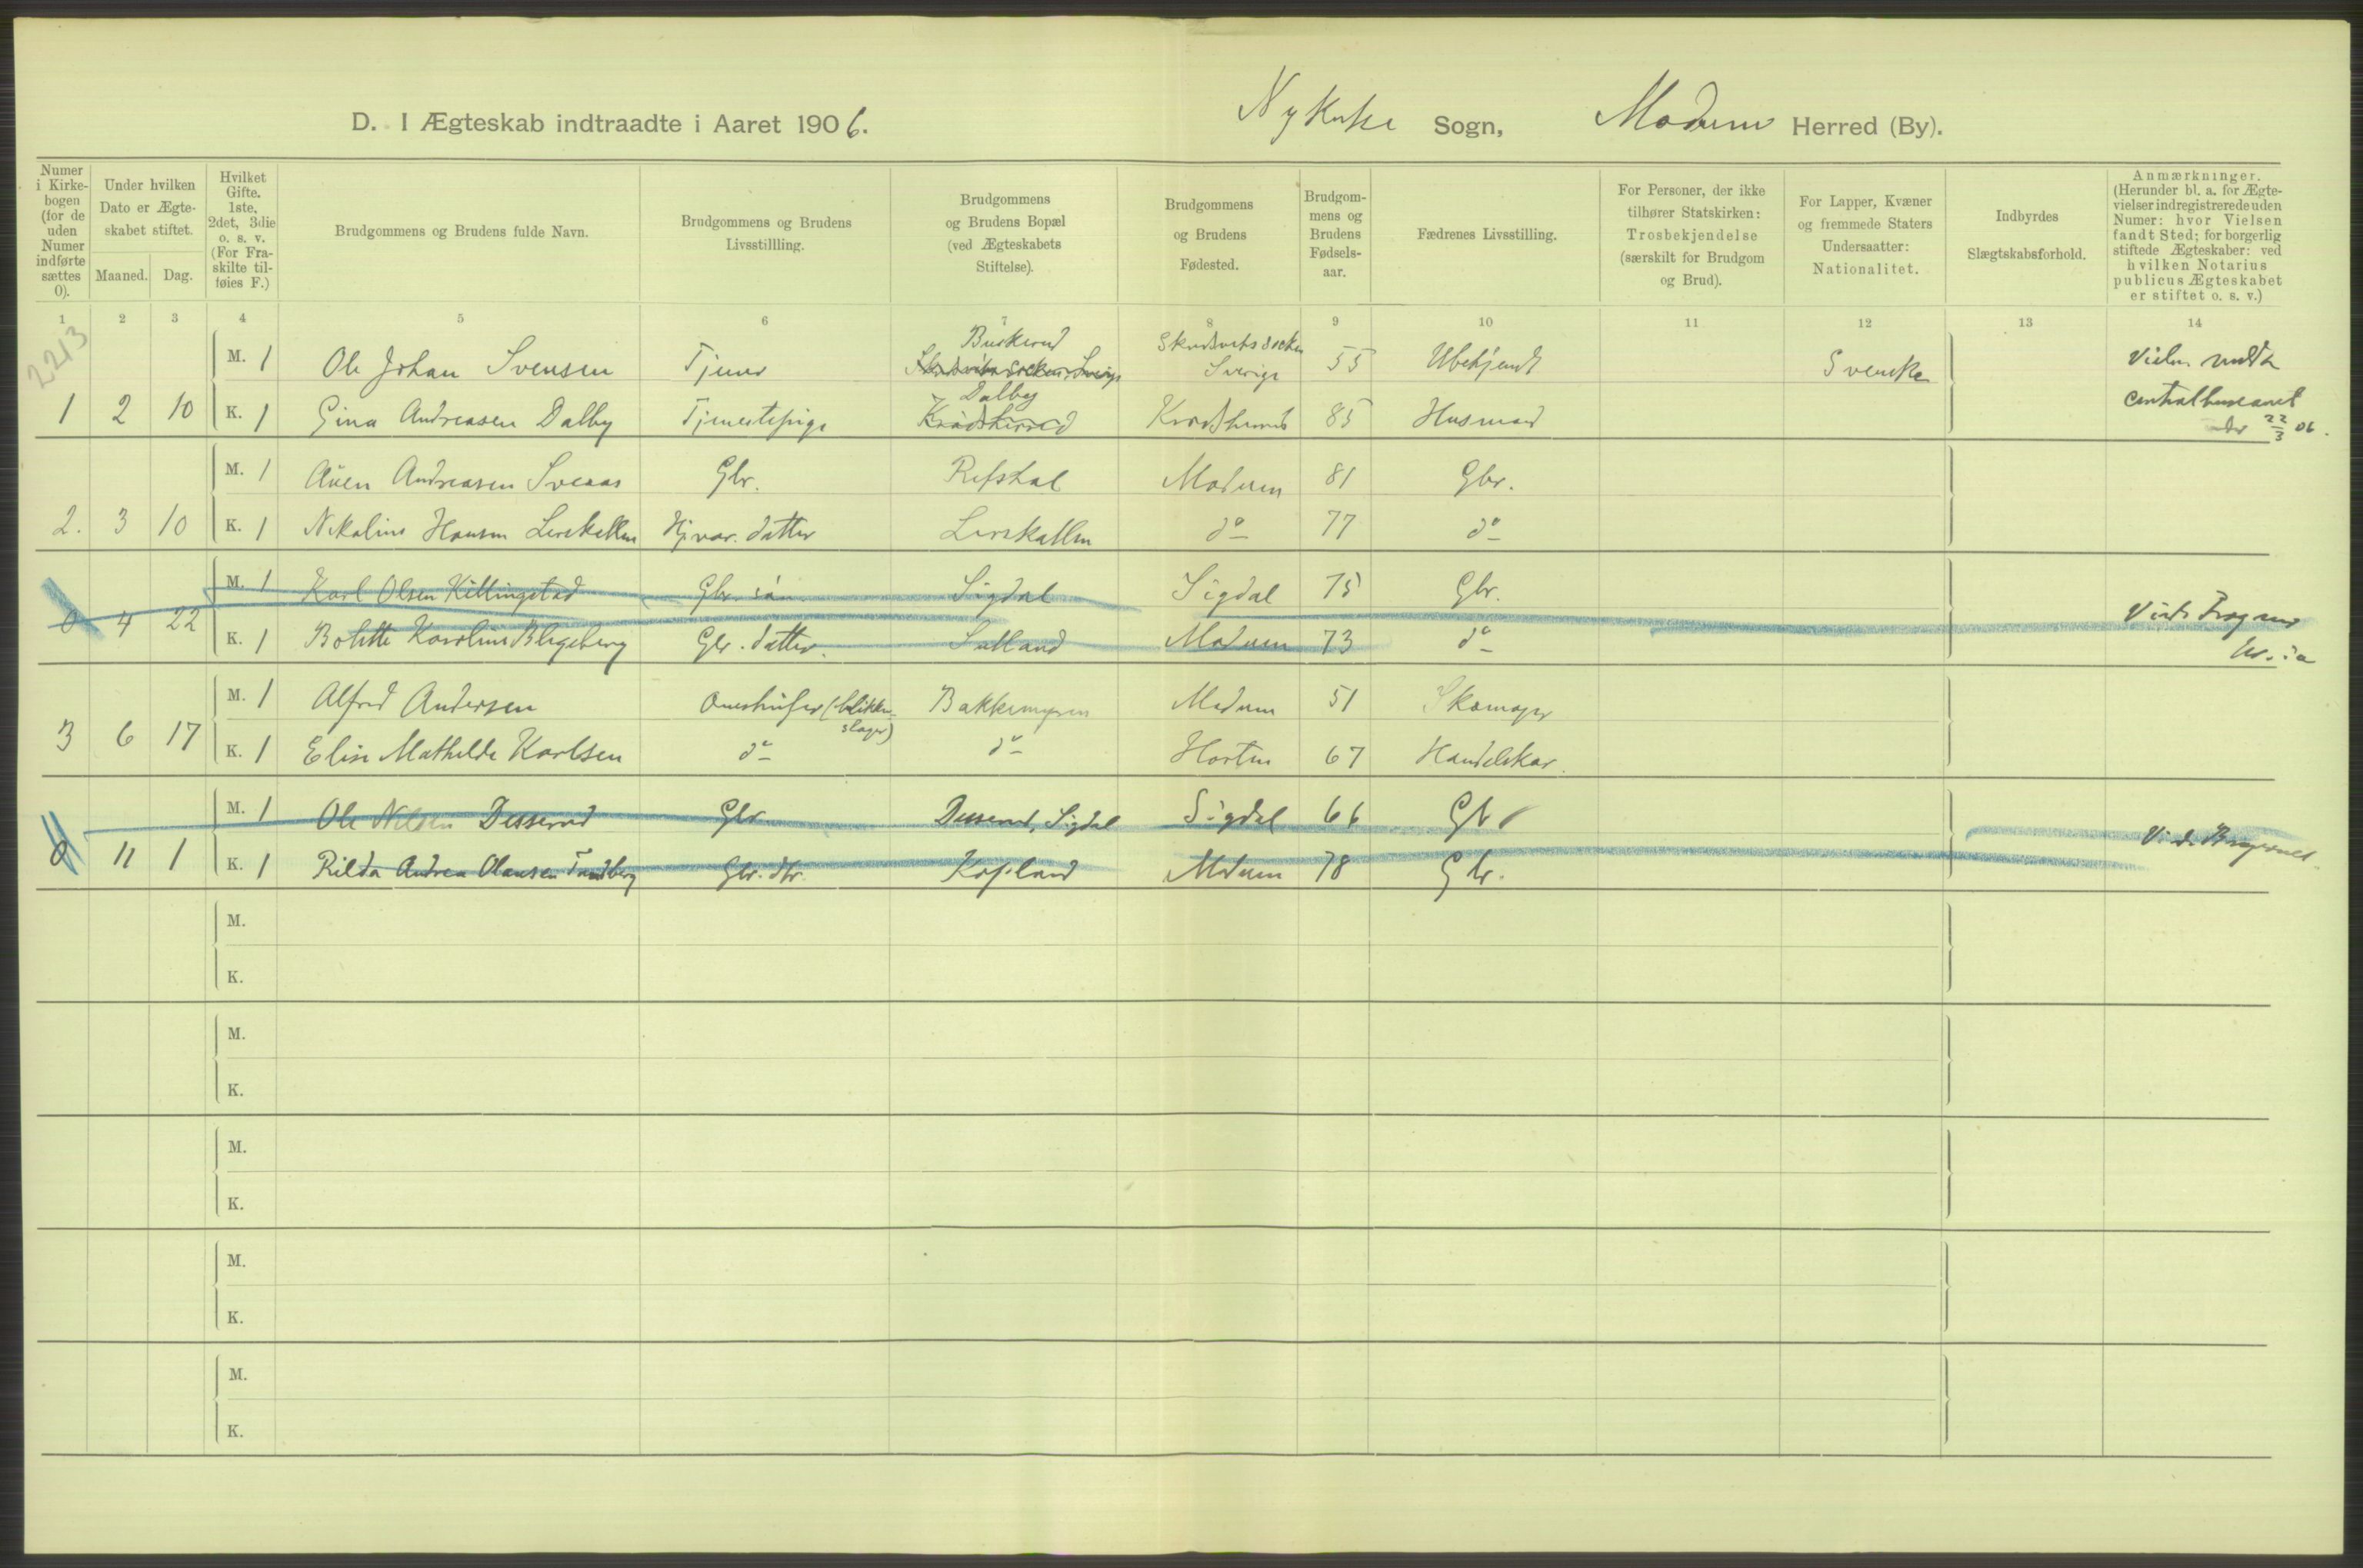 D. I Ægteskab indtraadte i Aaret 1906. Nykirke Sogn, Modum Herred (By).
Numer i Kirkebogen (for de uden Numer indførte sættes 0).
Under hvilken Dato er Ægteskabet stiftet.
Maaned. Dag.
Hvilket Gifte. 1ste, 2det, 3die o. s. v. (For Fraskilte tilføies F.)
Brudgommens og Brudens fulde Navn.
Brudgommens og Brudens Livsstillling.
Brudgommens og Brudens Bopæl (ved Ægteskabets Stiftelse).
Brudgommens og Brudens Fødested.
Brudgommens og Brudens Fødselsaar.
Fædrenes Livsstilling.
For Personer, der ikke tilhører Statskirken: Trosbekjendelse (særskilt for Brudgom og Brud).
For Lapper, Kvæner og fremmede Staters Undersaatter: Nationalitet.
Indbyrdes Slægtskabsforhold.
Anmærkninger. (Herunder bl. a. for Ægtevielser indregistrerede uden Numer: hvor Vielsen fandt Sted; for borgerlig stiftede Ægteskaber: ved hvilken Notarius publicus Ægteskabet er stiftet o. s. v.)
1 2 3 4 5 6 7 8 9 10 11 12 13 14
2213
M. 1 Ole Johan Svensen Tjener Buskerud Sverige 55 Ubekjendt Svenske
1 2 10 K. 1 Gina Andreasen Dalby Tjenestepige Dalby Krødsherred Krødsherred 85 Husmand Centralbureauet 22/3 06.
M. 1 Andreasen Sveaas Gbr. Refsdal Modum 81 Gbr.
2. 3 10 K. 1 Hansen Lerskallen datter Lerskallen do 77 do
M. 1 Karl Olsen Killingstad Gbr. søn Sigdal Sigdal 75 Gbr.
0 4 22 K. 1 Bolette Karoline Gbr. datter. Modum 73 do
M. 1 Alfred Andersen Omstreifer (blikkenslager) Bakkemyren Modum 51 Skomager
3 6 17 K. 1 Elise Mathilde Karlsen do do Horten 67 Handelskar.
M. 1 Ole Nilsen Desserud Gbr. Desserud, Sigdal Sigdal 66 Gbr
0 11 1 K. 1 Andrea Olausen Tandberg Gbr. dtr. Kopland Modum 78 Gbr.
M.
K.
M.
K.
M.
K.
M.
K.
M.
K.